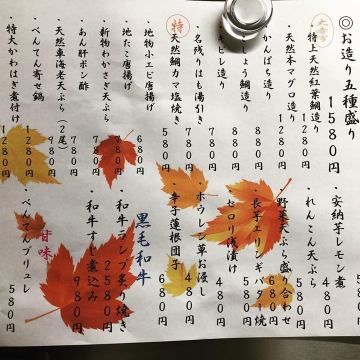 ◎お造り五種盛り 1580円
大市場
・特上天然紅葉鯛造り 1280円
・天然本マグロ造り 1280円
・かんぱち造り 880円
しょう鯛造り 880円
ヒレ造り 880円
・名残りはも湯引き 780円
特 天然鯛カマ塩焼き 580円
・地物小エビ唐揚げ 680円
・地たこ唐揚げ 780円
・新物わかさぎ天ぷら 780円
・あん肝ポン酢 780円
・天然車海老天ぷら(2尾) 980円
・べんてん寄せ鍋 1280円
・特大かわはぎ煮付け 1280円
・安納芋レモン煮 480円
・れんこん天ぷら 480円
・野菜天ぷら盛り合わせ
・長芋エリンギバター焼 580円
・セロリ浅漬け 480円
・ホウレン草お浸し 480円
・辛子蓮根団子 680円
黒毛和牛
・和牛ランプ炙り焼き 2580円
・和牛すじ煮込み 980円
甘味
・べんてんブリュレ 580円